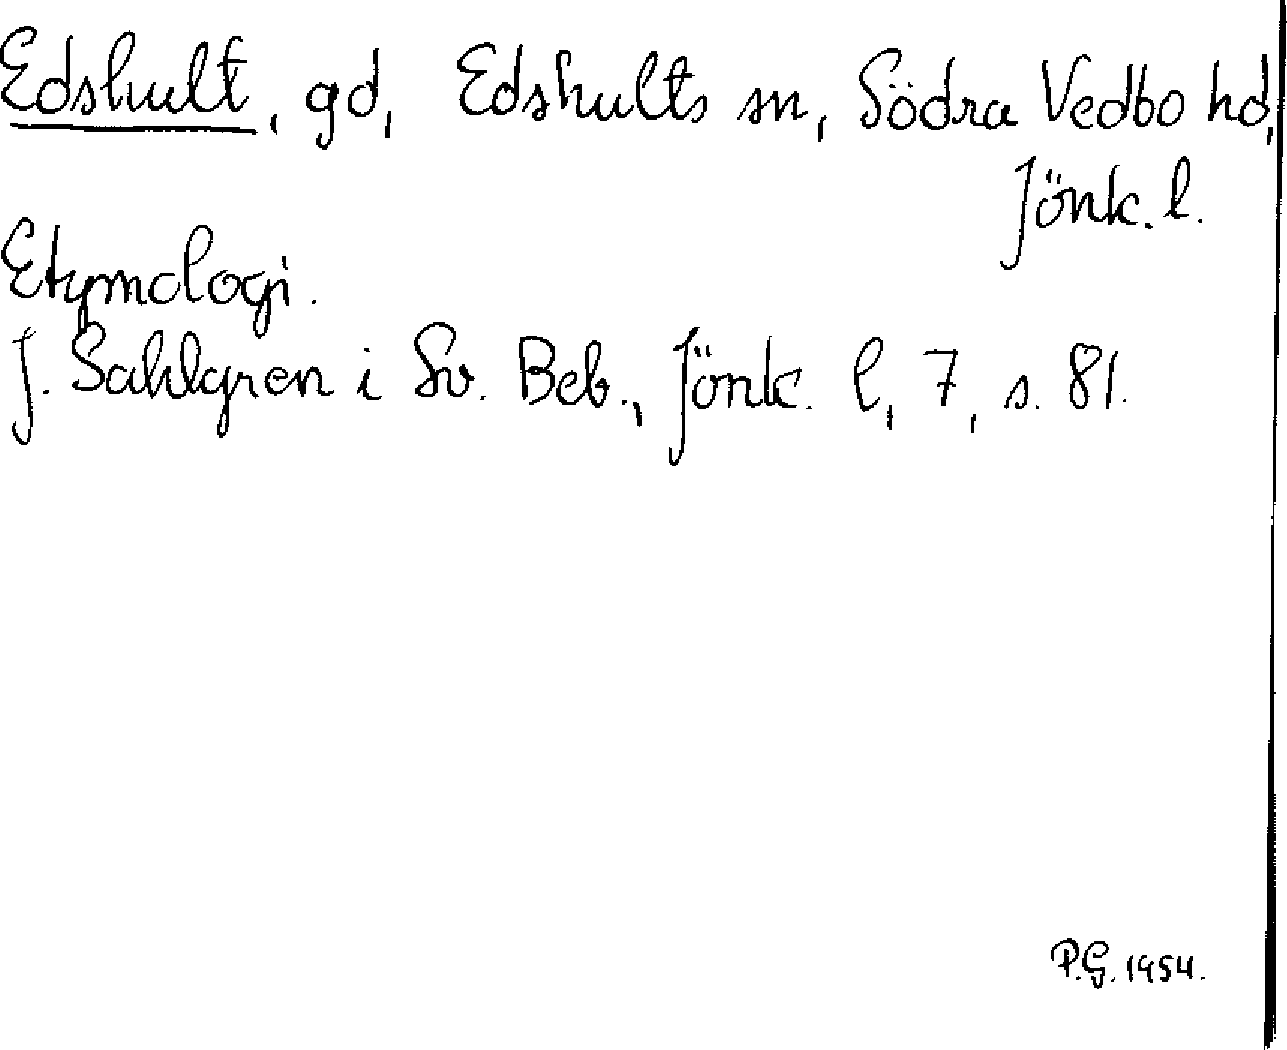 Edshult, gd, Edshults sn, Södra Vedbo hd,
Jönk. l.
Etymologi.
J. Sahlgren i Sv. Beb., Jönk. l, 7, s. 81.
P.G. 1954.